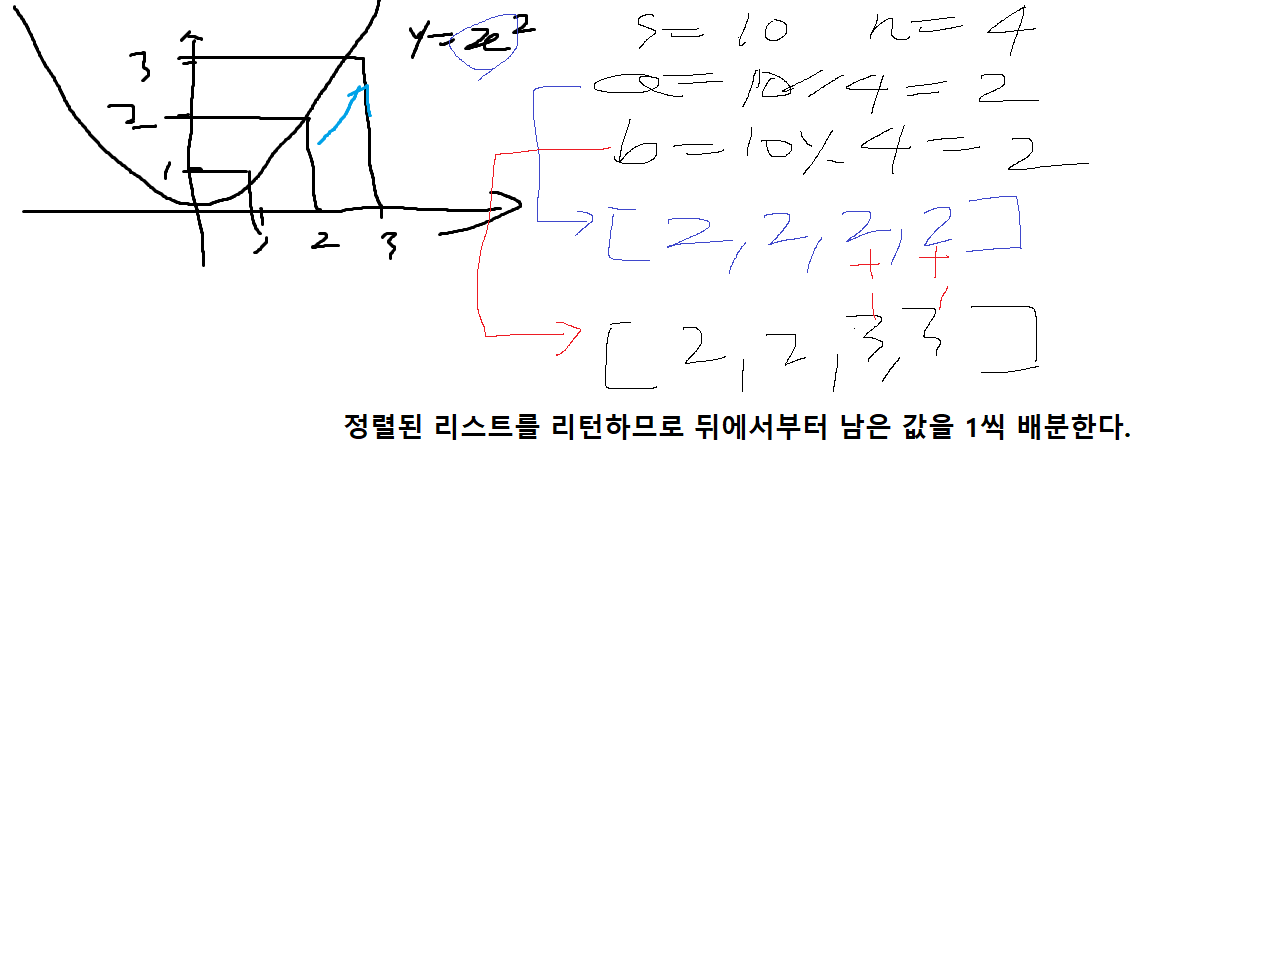 3
2
1
1 2 3
y=x²
s=10 n=4
a=10//4=2
b=10%4=2
[2,2,2,2]
+ +
1 1
[2,2,3,3]
정렬된 리스트를 리턴하므로 뒤에서부터 남은 값을 1씩 배분한다.